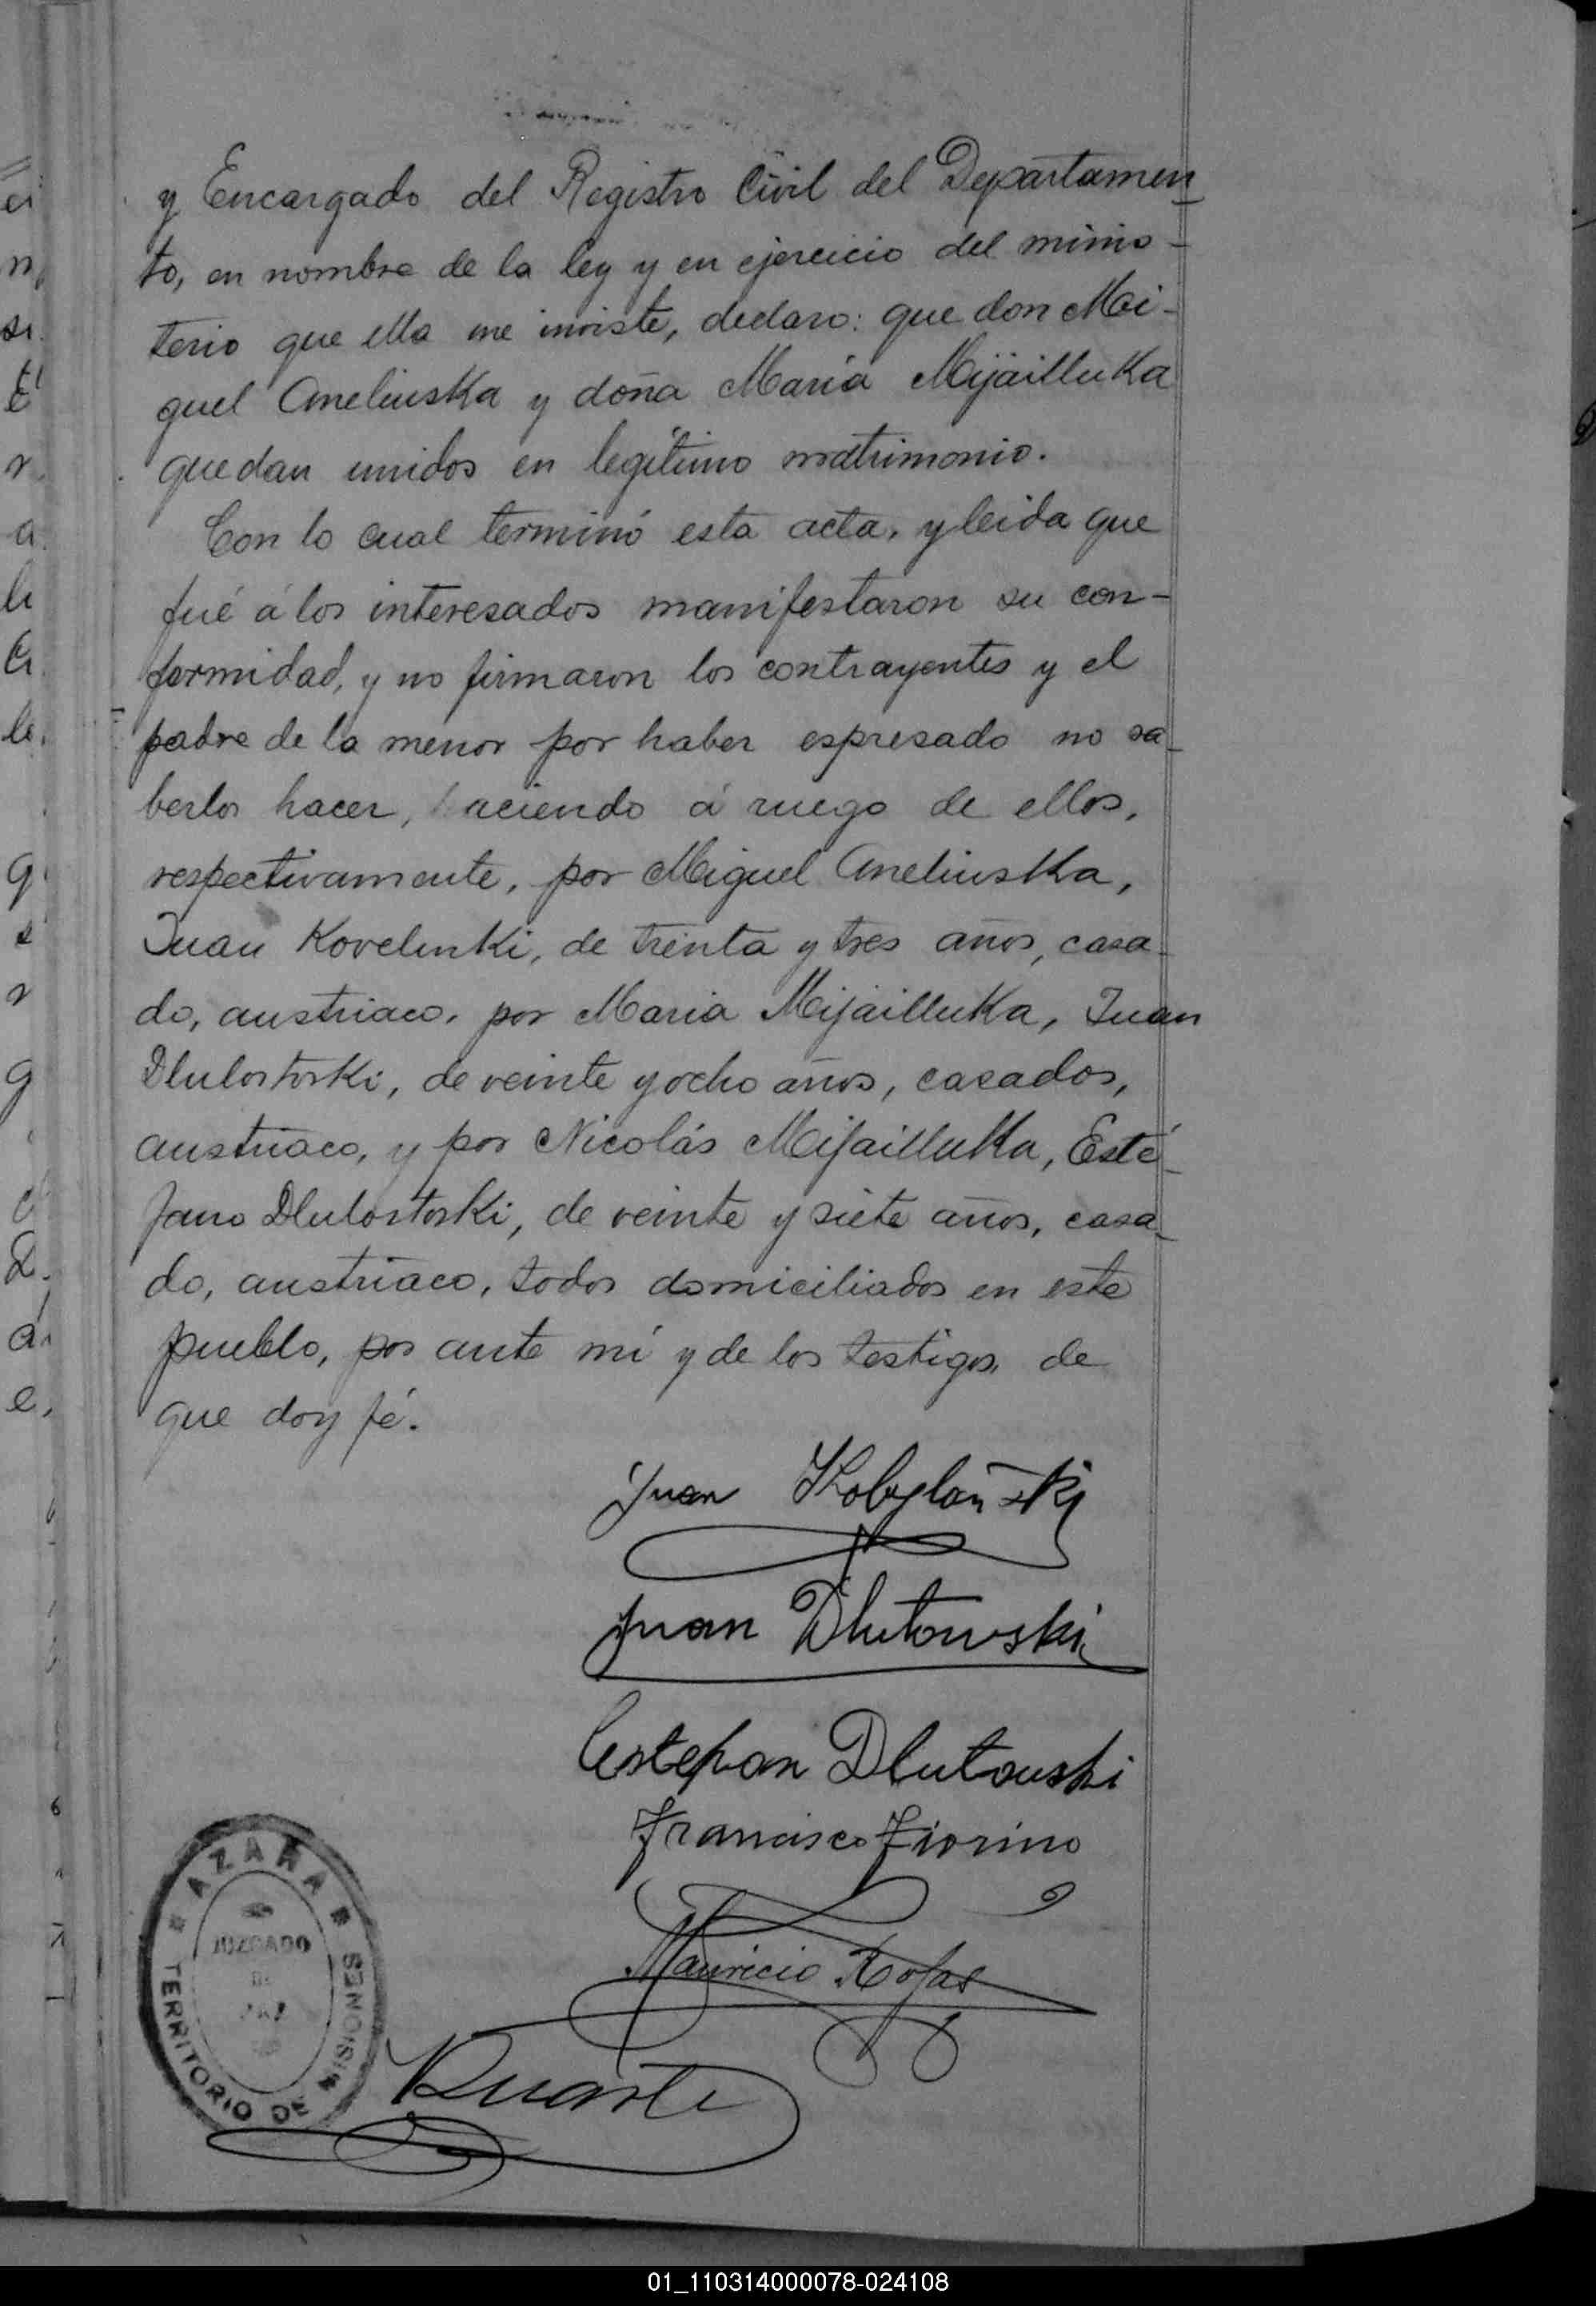 y Encargado del Registro Civil del Departamen
to, en nombre de la ley y en ejercicio del minis-
terio que ella me inviste, declaro: que don Mi-
guel Aneliuska y doña Maria Mijäilluka
quedan unidos en legítimo matrimonio.
Con lo cual terminó esta acta, y leida que
fué á los interesados manifestaron su con-
formidad, y no firmaron los contrayentes y el
padre de la menor por haber espresado no sa-
berlos hacer, haciendo á ruego de ellos,
respectivamente, por Miguel Aneliuska,
Juan Kovelinki, de treinta y tres años, casa-
do, austriaco, por Maria Mijailluka, Juan
Dlulostoski, de veinte y ocho años, casados,
austriaco, y por Nicolás Mijailluka, Esté-
fano Dlulostoski, de veinte y siete años, casa-
do, austriaco, todos domiciliados en este
pueblo, por ante mí y de los testigos, de
que doy fé.
Juan Kobylański
Juan Dlutowski
Estephan Dlutouski
Francisco Fiorino
Mauricio Rojas
AZARA
JUZGADO
DE
PAZ
TERRITORIO DE MISIONES
Duarte
01_110314000078-024108